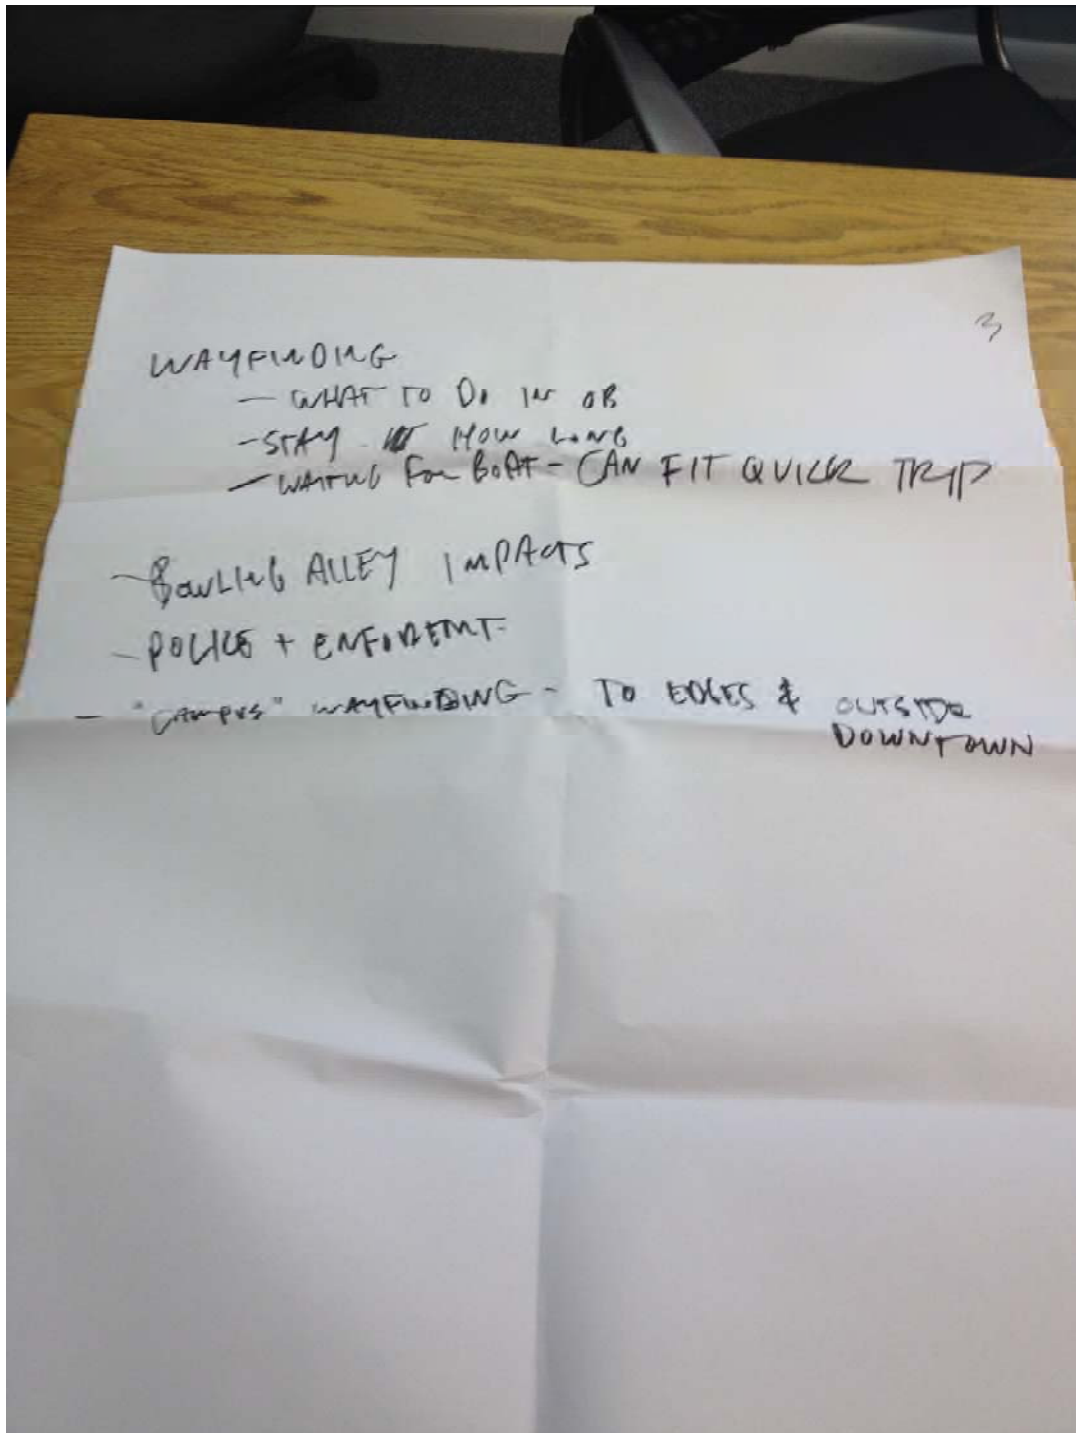 3
WAYFINDING
- WHAT TO DO IN OB
- STAY HOW LONG
- WAITING FOR BOAT - CAN FIT QUICK TRIP
- BOWLING ALLEY IMPACTS
- POLICE + ENFOREMT
- "CAMPUS" WAYFINDING - TO EDGES & OUTSIDE
DOWNTOWN